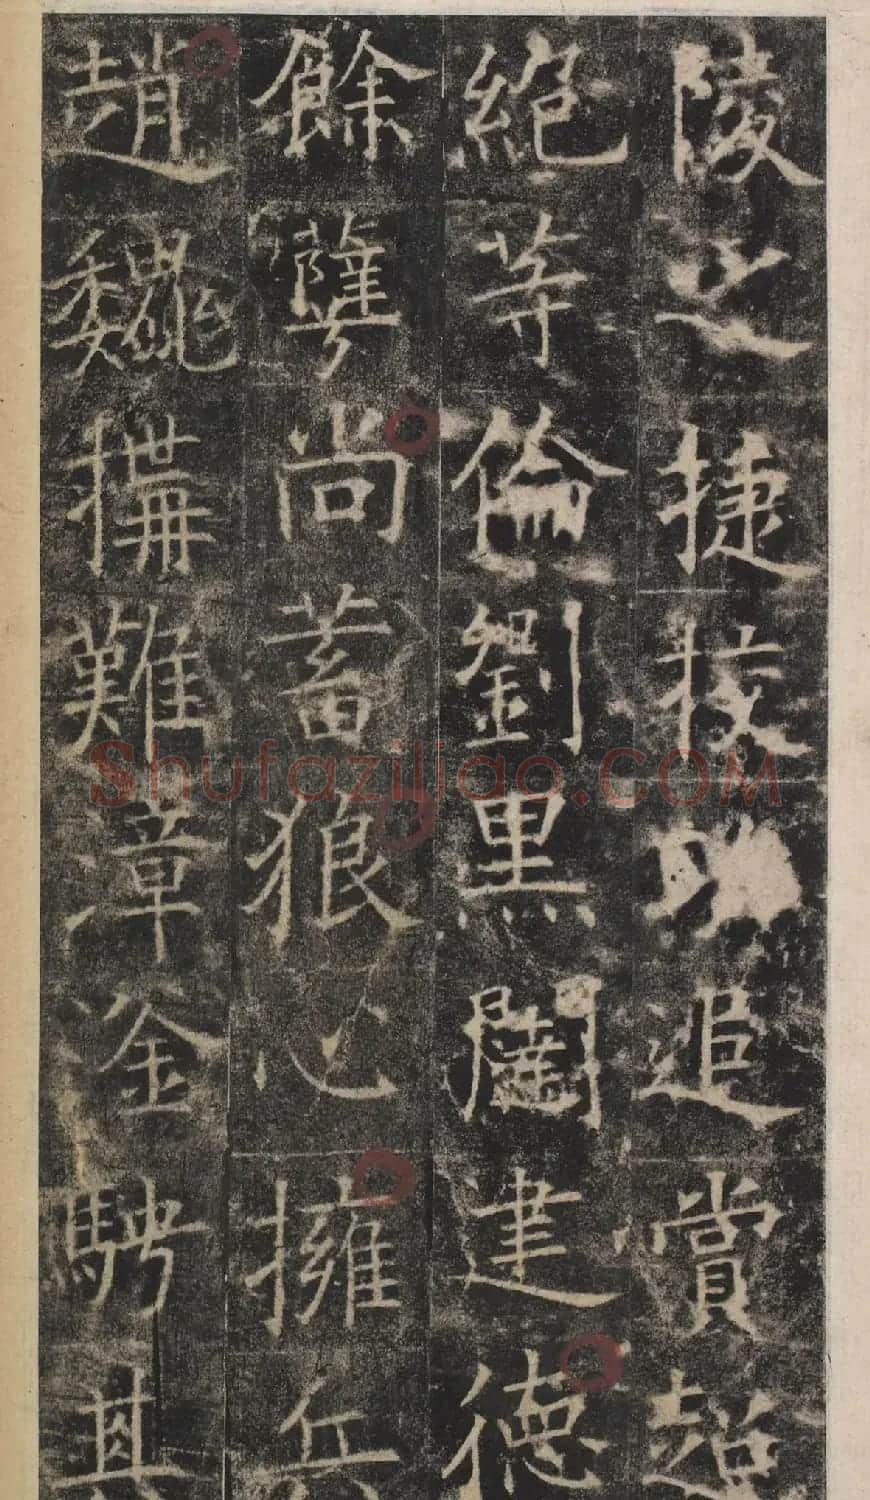 陵之捷校追賞超
絶等倫劉黑闥建德
餘孽尚蓄狼心擁兵
趙魏搆難漳滏騁其
Shufaziliao.COM